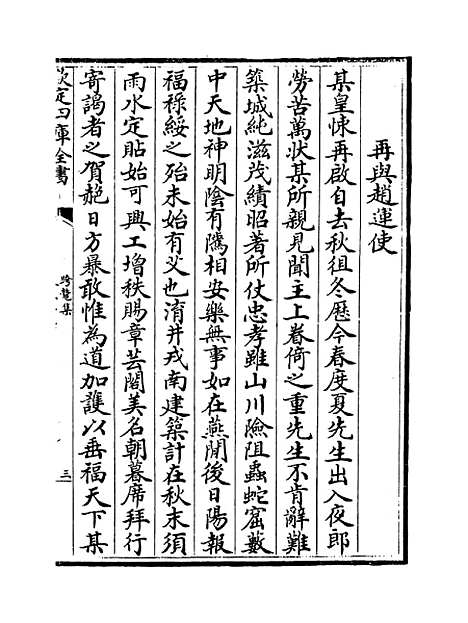 再與趙運使
某皇悚再啟自去秋徂冬歷今春度夏先生出入夜郎
勞苦萬狀某所親見聞主上眷倚之重先生不肯辭難
築城純滋茂績昭著所仗忠孝雖山川險阻蟲蛇窟藪
中天地神明陰有隲相安樂無事如在燕閒後日陽報
福祿綏之殆未始有艾也淯井戎南建築計在秋末須
雨水定貼始可興工增秩賜章芸閣美名朝暮席拜行
寄謁者之賀赩日方暴敢惟為道加護以垂福天下某
欽定四庫全書
跨鼇集
三